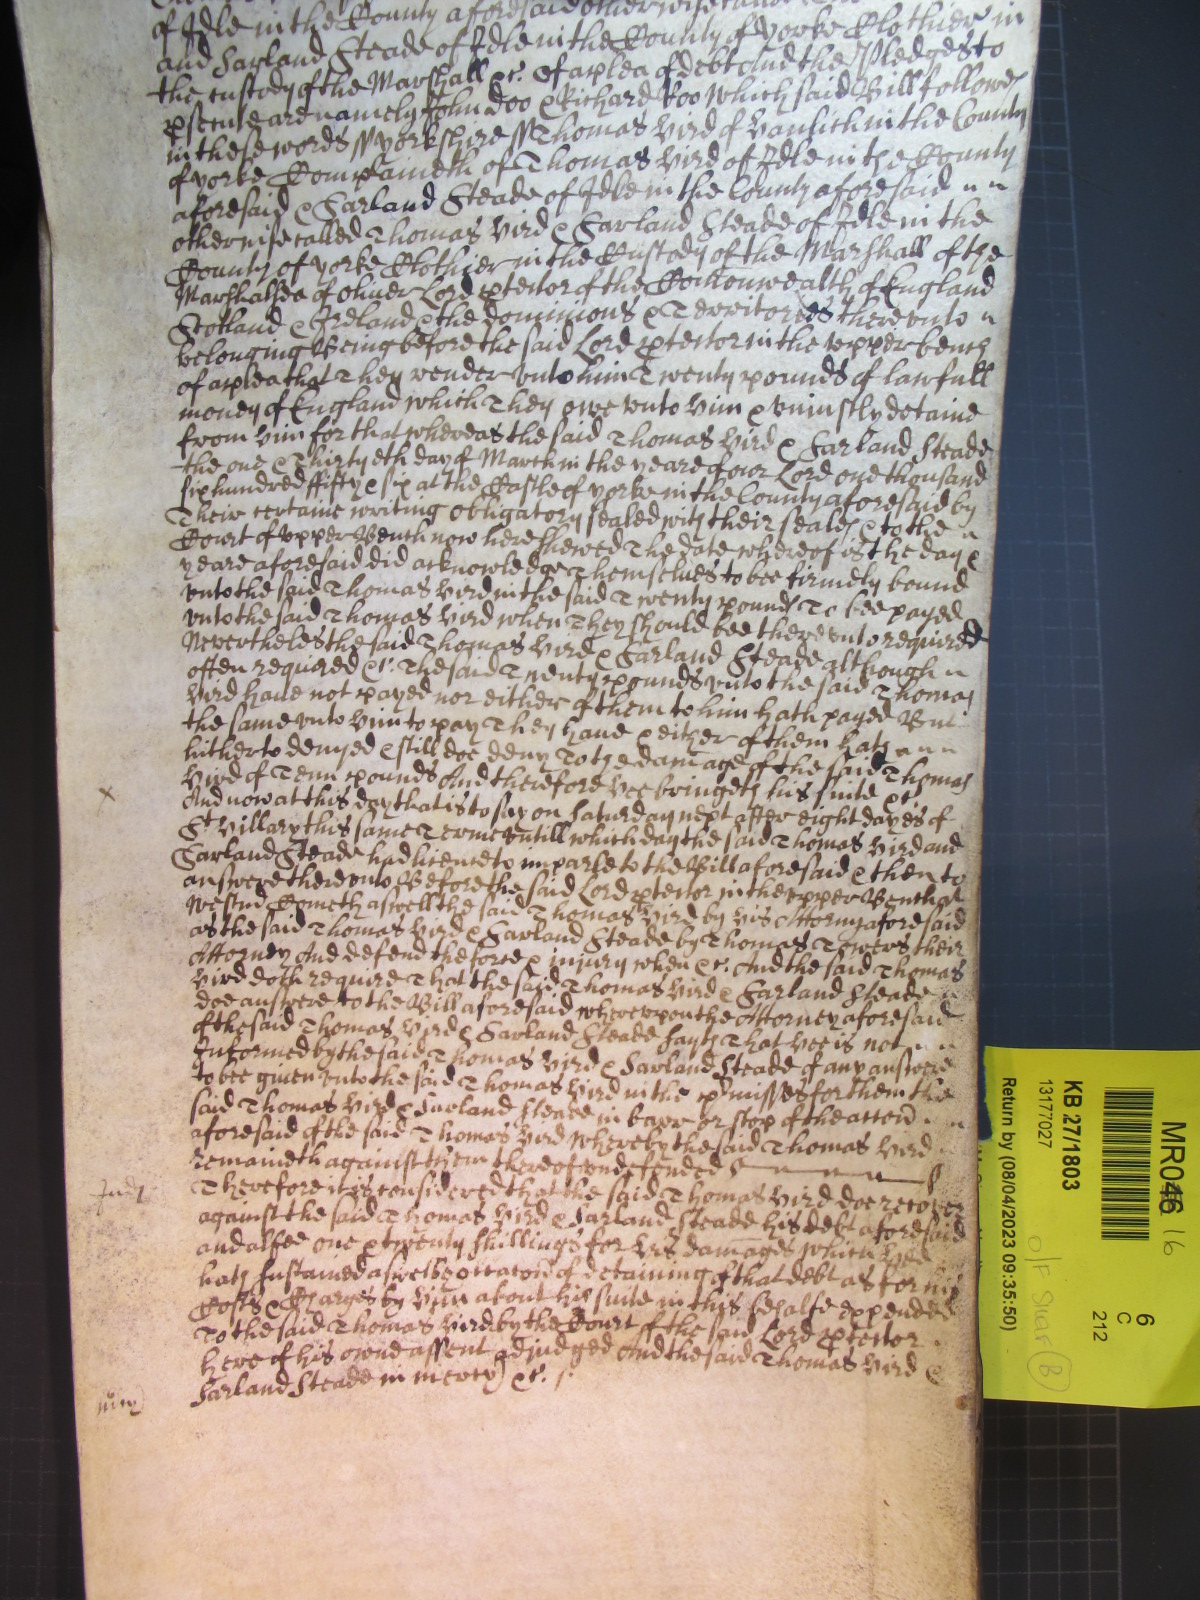 of Idle in the County aforesaid otherwise called
and Sarland Steade of Idle in the County of Yorke Clothier in
the custody of the Marshall &c. Of a plea of debt And the Pledges to
psecute are namely John Doo & Richard Roo Which said Bill followes
in these words ss Yorkshire ss Thomas Hird of in the County
of Yorke Complaineth of Thomas Hird of Idle in the County
aforesaid & Sarland Steade of Idle in the County aforesaid
otherwise called Thomas Hird & Sarland Steade of Idle in the
County of Yorke Clothier in the Custody of the Marshall of the
Marshalsea of Oliver Lord ptector of the Comonwealth of England
Scotland & Ireland & the dominions & Territories thereunto
belonging Being before the said Lord ptector in the upper bench
of a plea that They render unto him Twenty pounds of lawfull
money of England which They owe unto him & uniustly detaine
from him for that whereas the said Thomas Hird & Sarland Steade
the one & Thirtyeth day of March in the yeare of our Lord one thousand
six hundred ffifty & six at the Castle of Yorke in the County aforesaid by
Their certaine writing obligatory sealed with their seales & to the
Court of upper Bench now here shewed The date whereof is the day &
yeare aforesaid did acknowledge Themselves to bee firmely bound
unto the said Thomas Hird in the said Twenty pounds To bee payed
unto the said Thomas Hird when They should bee thereunto required
Nevertheles the said Thomas Hird & Sarland Steade although
often required &c. The said Twenty pounds unto the said Thomas
Hird have not payed nor either of them to him hath payed But
the same unto him to pay They have & either of them hath
hitherto denyed & still doe deny To the damage of the said Thomas
Hird of Tenn pounds And therefore hee bringeth his suite &c
And now at this day that is to say on Saturday next after eight dayes of
St Hillary this same Terme untill which day the said Thomas Hird and
Sarland Steade had licence to imparle to the Bill aforesaid & then to
answere thereunto Before the said Lord ptector in the upper Bench at
Westmr Cometh aswell the said Thomas Hird by his Attorny aforesaid
as the said Thomas Hird & Sarland Steade by Thomas Towers their
Attorney And defend the force & iniury when &c. And the said Thomas
Hird doth require That the said Thomas Hird & Sarland Steade
doe answere to the Bill aforesaid whereupon the Attorney aforesaid
of the said Thomas Hird & Sarland Steade sayth That hee is not
Informed by the said Thomas Hird & Sarland Steade of any answere
to bee given unto the said Thomas Hird in the pmisses for them the
said Thomas Hird & Sarland Steade in barr or stop of the accon
aforesaid of the said Thomas Hird whereby the said Thomas Hird
remaineth against them thereof undefended
Judt
Therefore it is considered that the said Thomas Hird doe recover
against the said Thomas Hird & Sarland Steade his debt aforesaid
and alsoe one & twenty shillings for his damages which hee
hath sustained aswell by occacon of detaining of that debt as for his
Costs & Charges by him about his suite in this behalfe expended
To the said Thomas Hird by the Court of the said Lord ptector
here of his owne assent adjudged And the said Thomas Hird &
Sarland Steade in mercy &c.
mcy
MR046 16
6
C
212
KB 27/1803
13177027
Return by (08/04/2023 09:35:50)